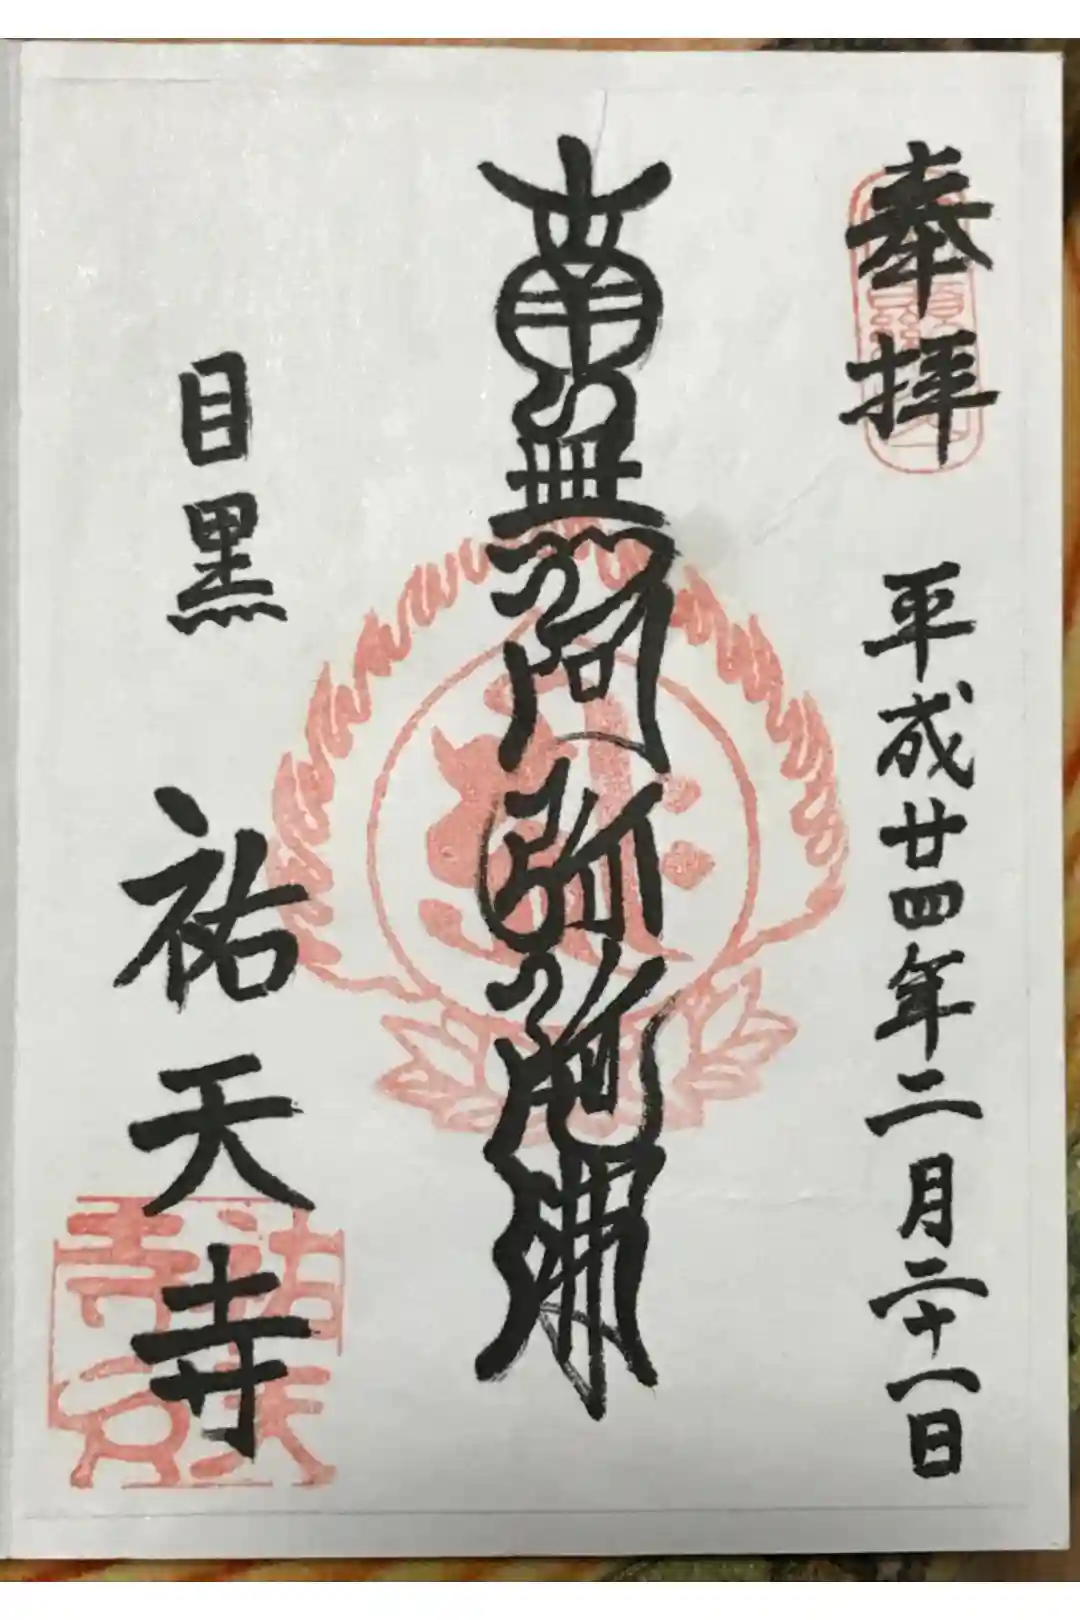 奉拝 平成廿四年二月二十一日
南無阿弥陀佛
目黒 祐天寺